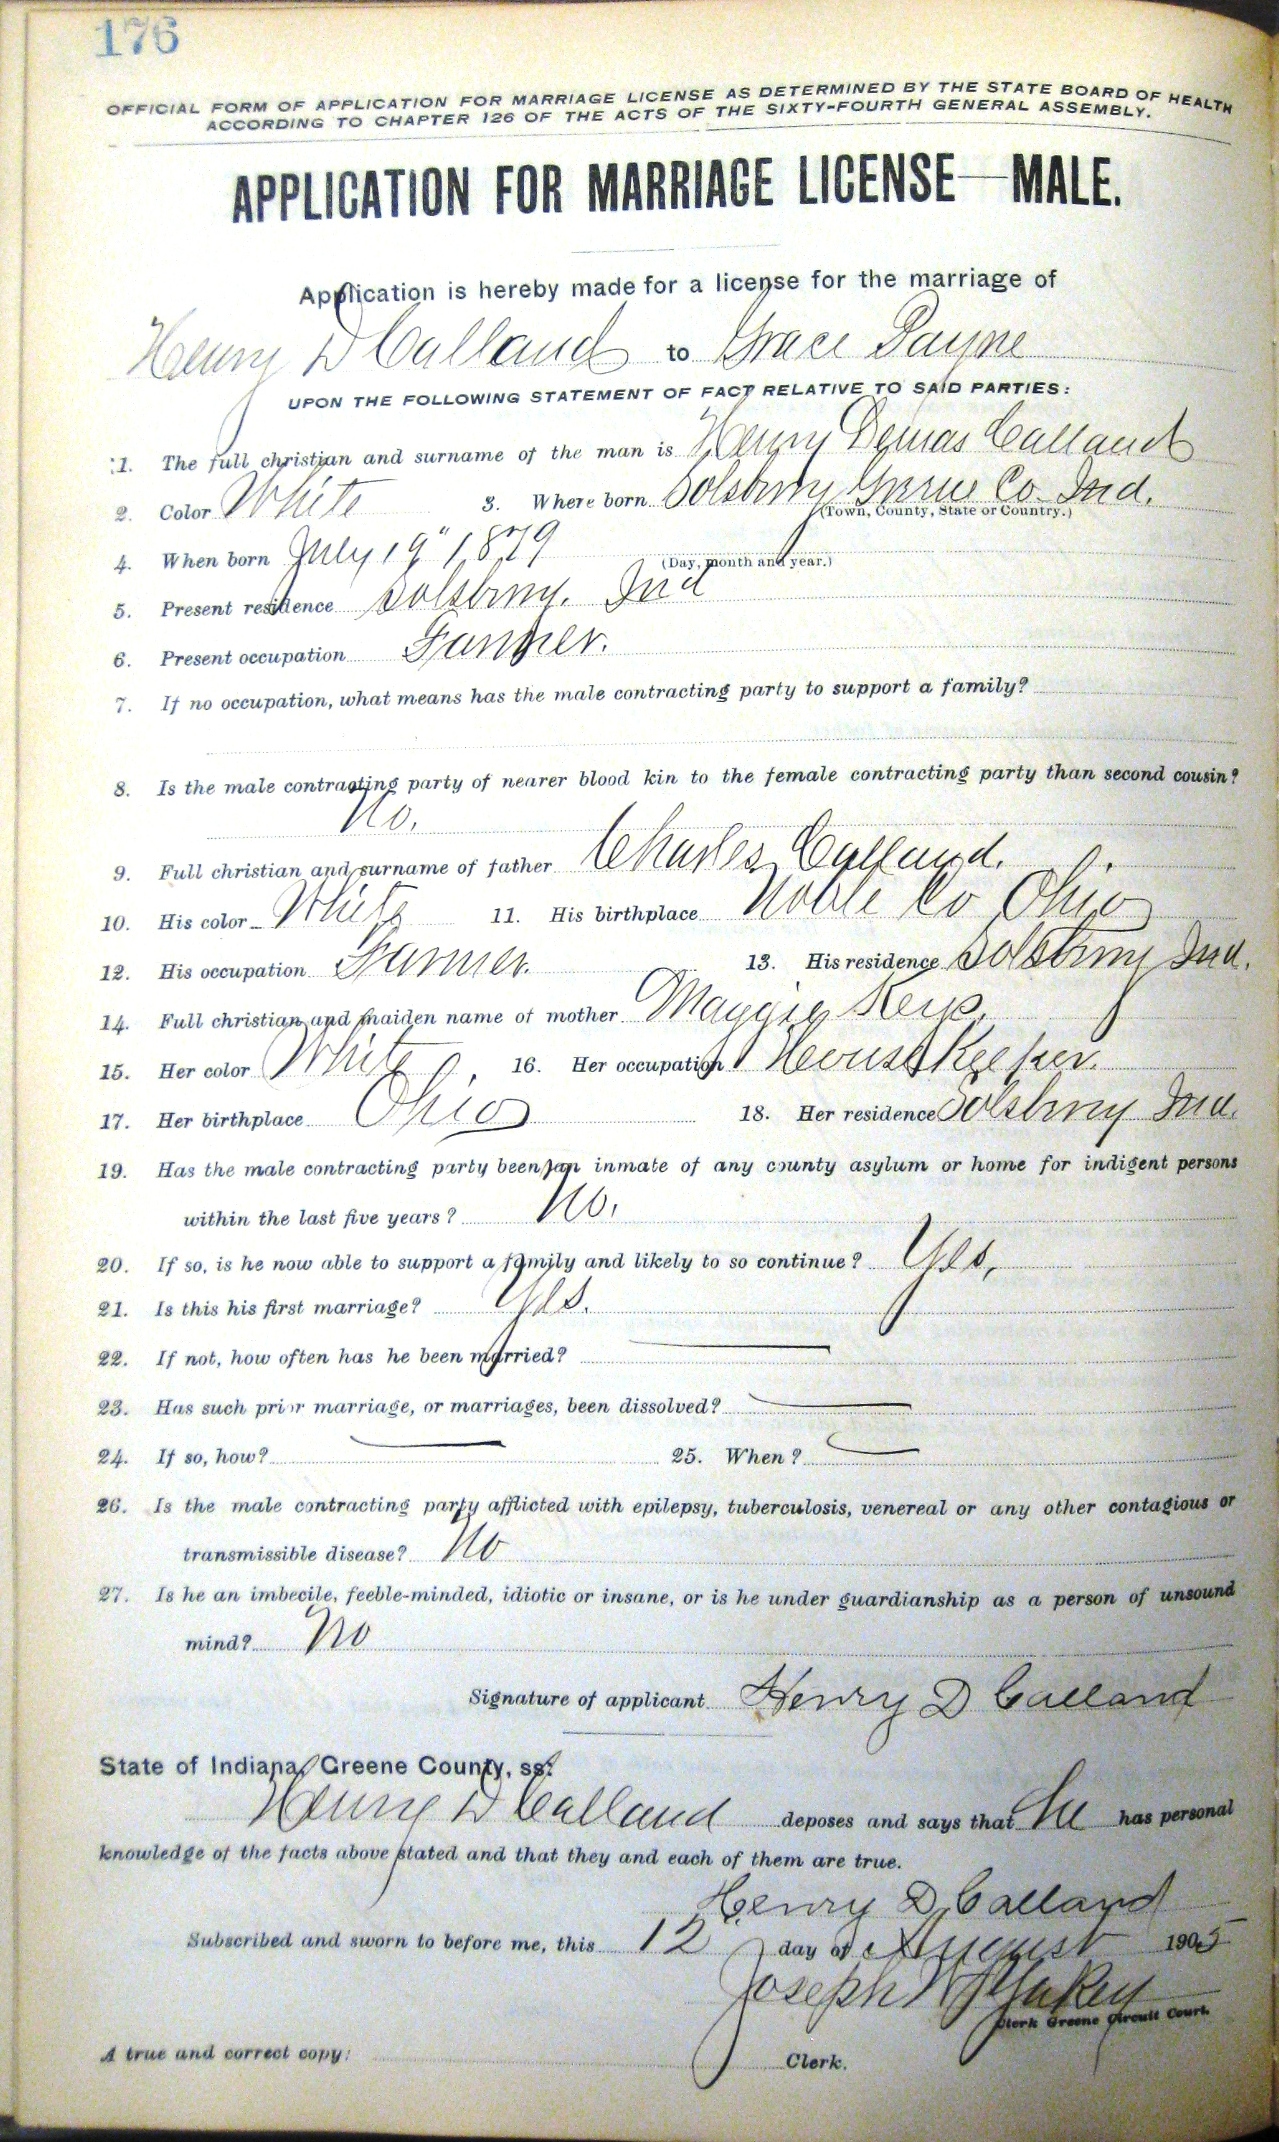 176
OFFICIAL FORM OF APPLICATION FOR MARRIAGE LICENSE AS DETERMINED BY THE STATE BOARD OF HEALTH
ACCORDING TO CHAPTER 126 OF THE ACTS OF THE SIXTY-FOURTH GENERAL ASSEMBLY.
APPLICATION FOR MARRIAGE LICENSE—MALE.
Application is hereby made for a license for the marriage of
Henry D Calland to Grace Payne
UPON THE FOLLOWING STATEMENT OF FACT RELATIVE TO SAID PARTIES:
1. The full christian and surname of the man is Henry Demas Calland
2. Color White 3. Where born Solsbury Greene Co. Ind.
(Town, County, State or Country.)
4. When born July 19" 1879
(Day, month and year.)
5. Present residence Solsbury. Ind
6. Present occupation Farmer.
7. If no occupation, what means has the male contracting party to support a family?
8. Is the male contracting party of nearer blood kin to the female contracting party than second cousin?
No.
9. Full christian and surname of father Charles Calland.
10. His color White 11. His birthplace Noble Co Ohio
12. His occupation Farmer. 13. His residence Solsbury Ind.
14. Full christian and maiden name of mother Maggie
15. Her color White 16. Her occupation House Keeper.
17. Her birthplace Ohio 18. Her residence Solsbury Ind.
19. Has the male contracting party been an inmate of any county asylum or home for indigent persons
within the last five years? No.
20. If so, is he now able to support a family and likely to so continue? Yes.
21. Is this his first marriage? Yes.
22. If not, how often has he been married?
23. Has such prior marriage, or marriages, been dissolved?
24. If so, how? 25. When?
26. Is the male contracting party afflicted with epilepsy, tuberculosis, venereal or any other contagious or
transmissible disease? No
27. Is he an imbecile, feeble-minded, idiotic or insane, or is he under guardianship as a person of unsound
mind? No
Signature of applicant Henry D Calland
State of Indiana, Greene County, ss:
Henry D Calland deposes and says that he has personal
knowledge of the facts above stated and that they and each of them are true.
Henry D Calland
Subscribed and sworn to before me, this 12" day of August 1905
Joseph W
Clerk Greene Circuit Court.
A true and correct copy: Clerk.